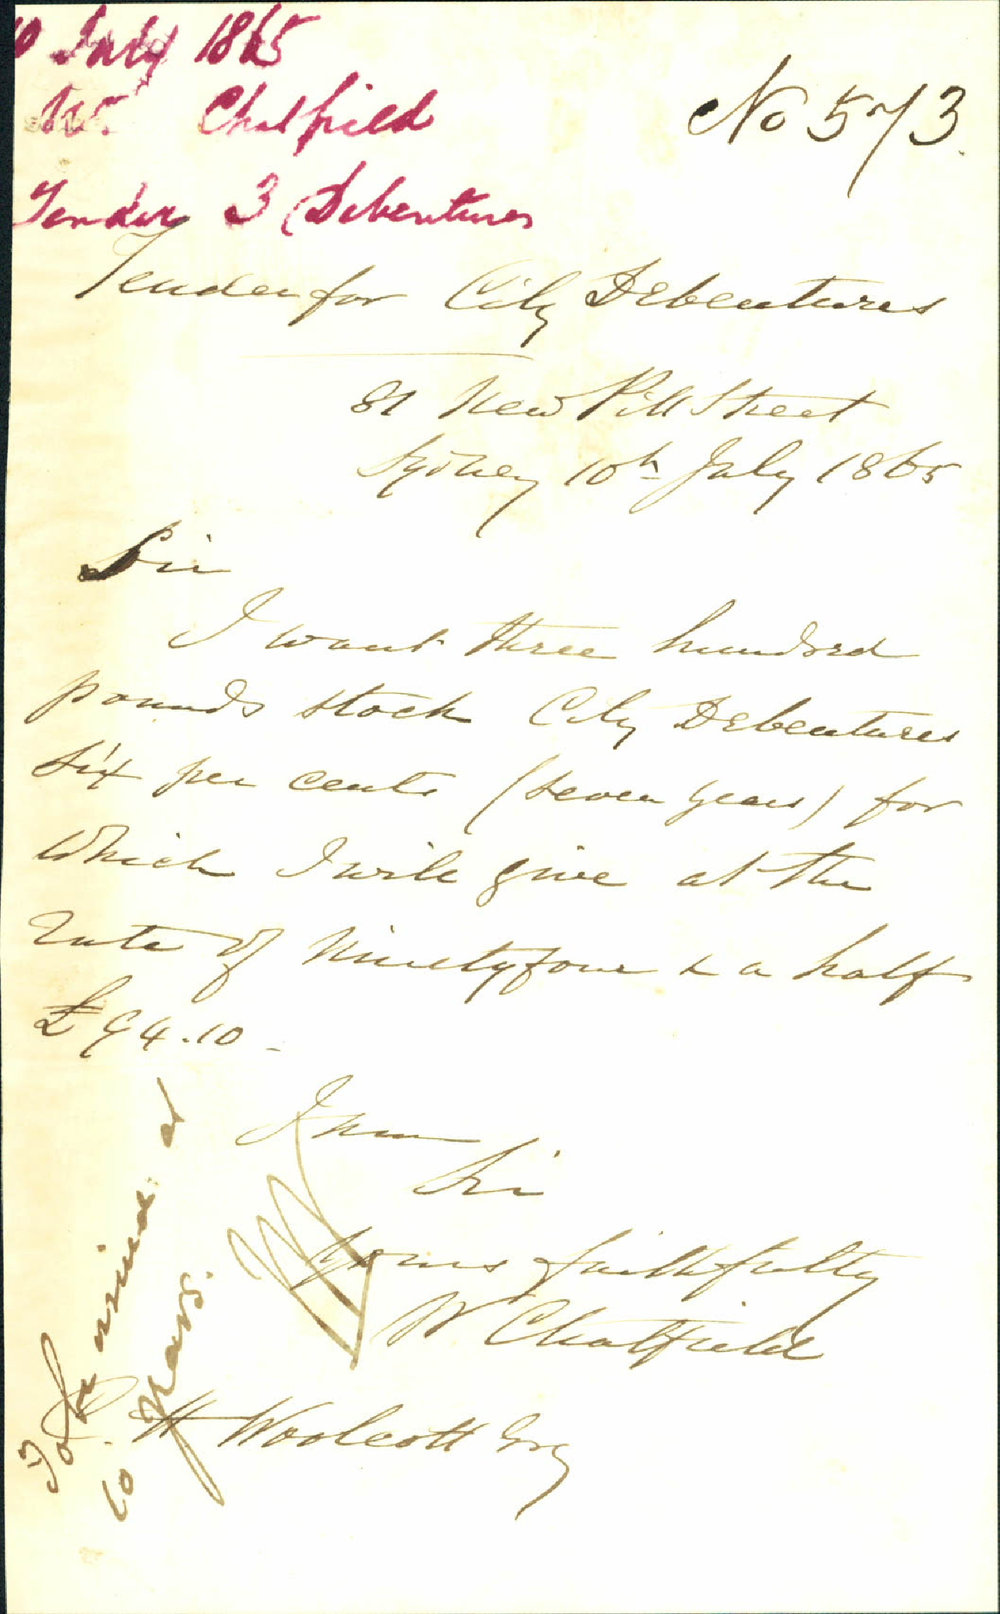 10 July 1865
W. Chatfield
Tender 3 Debentures
No 573.
Tender for City Debentures
81 New Pitt Street
Sydney 10th July 1865
Sir
I want three hundred
pounds stock City Debentures
six per cents (seven years) for
which I will give at the
rate of Ninetyfour & a half
£94.10
I am
Sir
Yours faithfully
W. Chatfield
W Woolcott Esq
To be issued at
10 years.